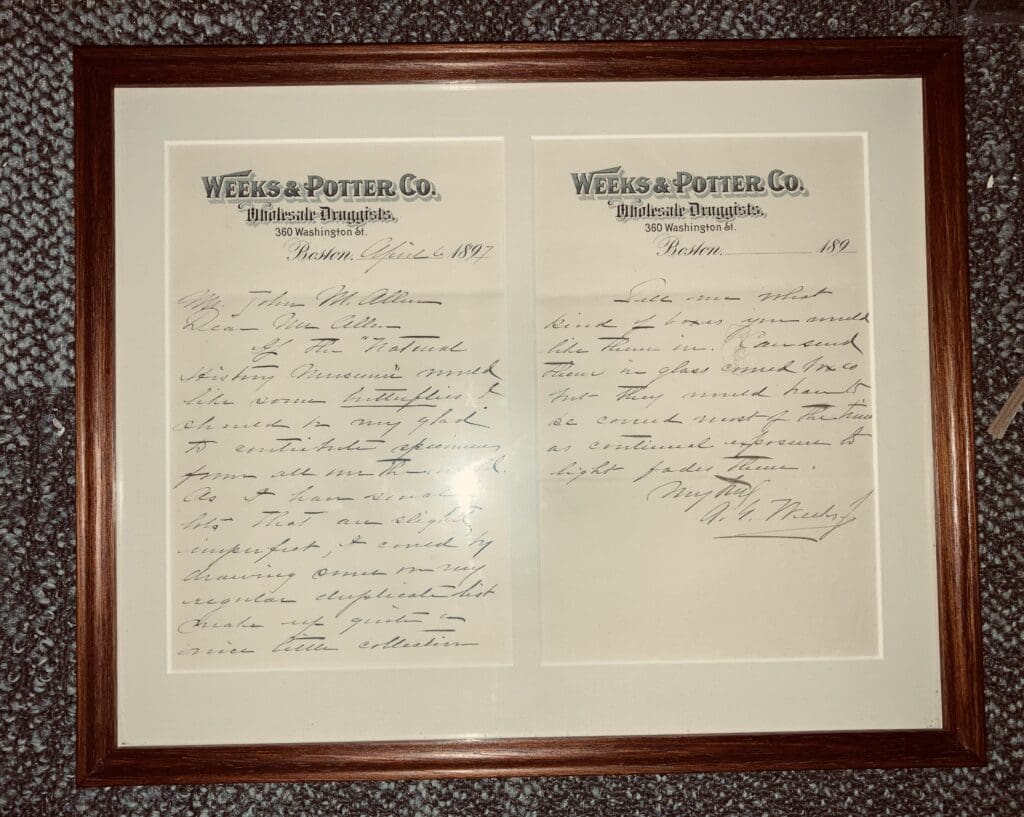 WEEKS & POTTER CO.
Wholesale Druggists,
360 Washington St.
Boston, April 6 1897
Mr. John M. Allen
Dear Mr Allen
If the "Natural
History Museum" would
like some butterflies I
should be very glad
to contribute specimens
from all over the world.
As I have several
lots that are slightly
imperfect, I could by
drawing some on my
regular duplicate list
make up quite a
nice little collection
WEEKS & POTTER CO.
Wholesale Druggists,
360 Washington St.
Boston, 189
Tell me what
kind of boxes you would
like them in. I can send
them in glass covered boxes
but they would have to
be covered most of the time
as continual exposure to
light fades them.
A. G. Weeks Jr